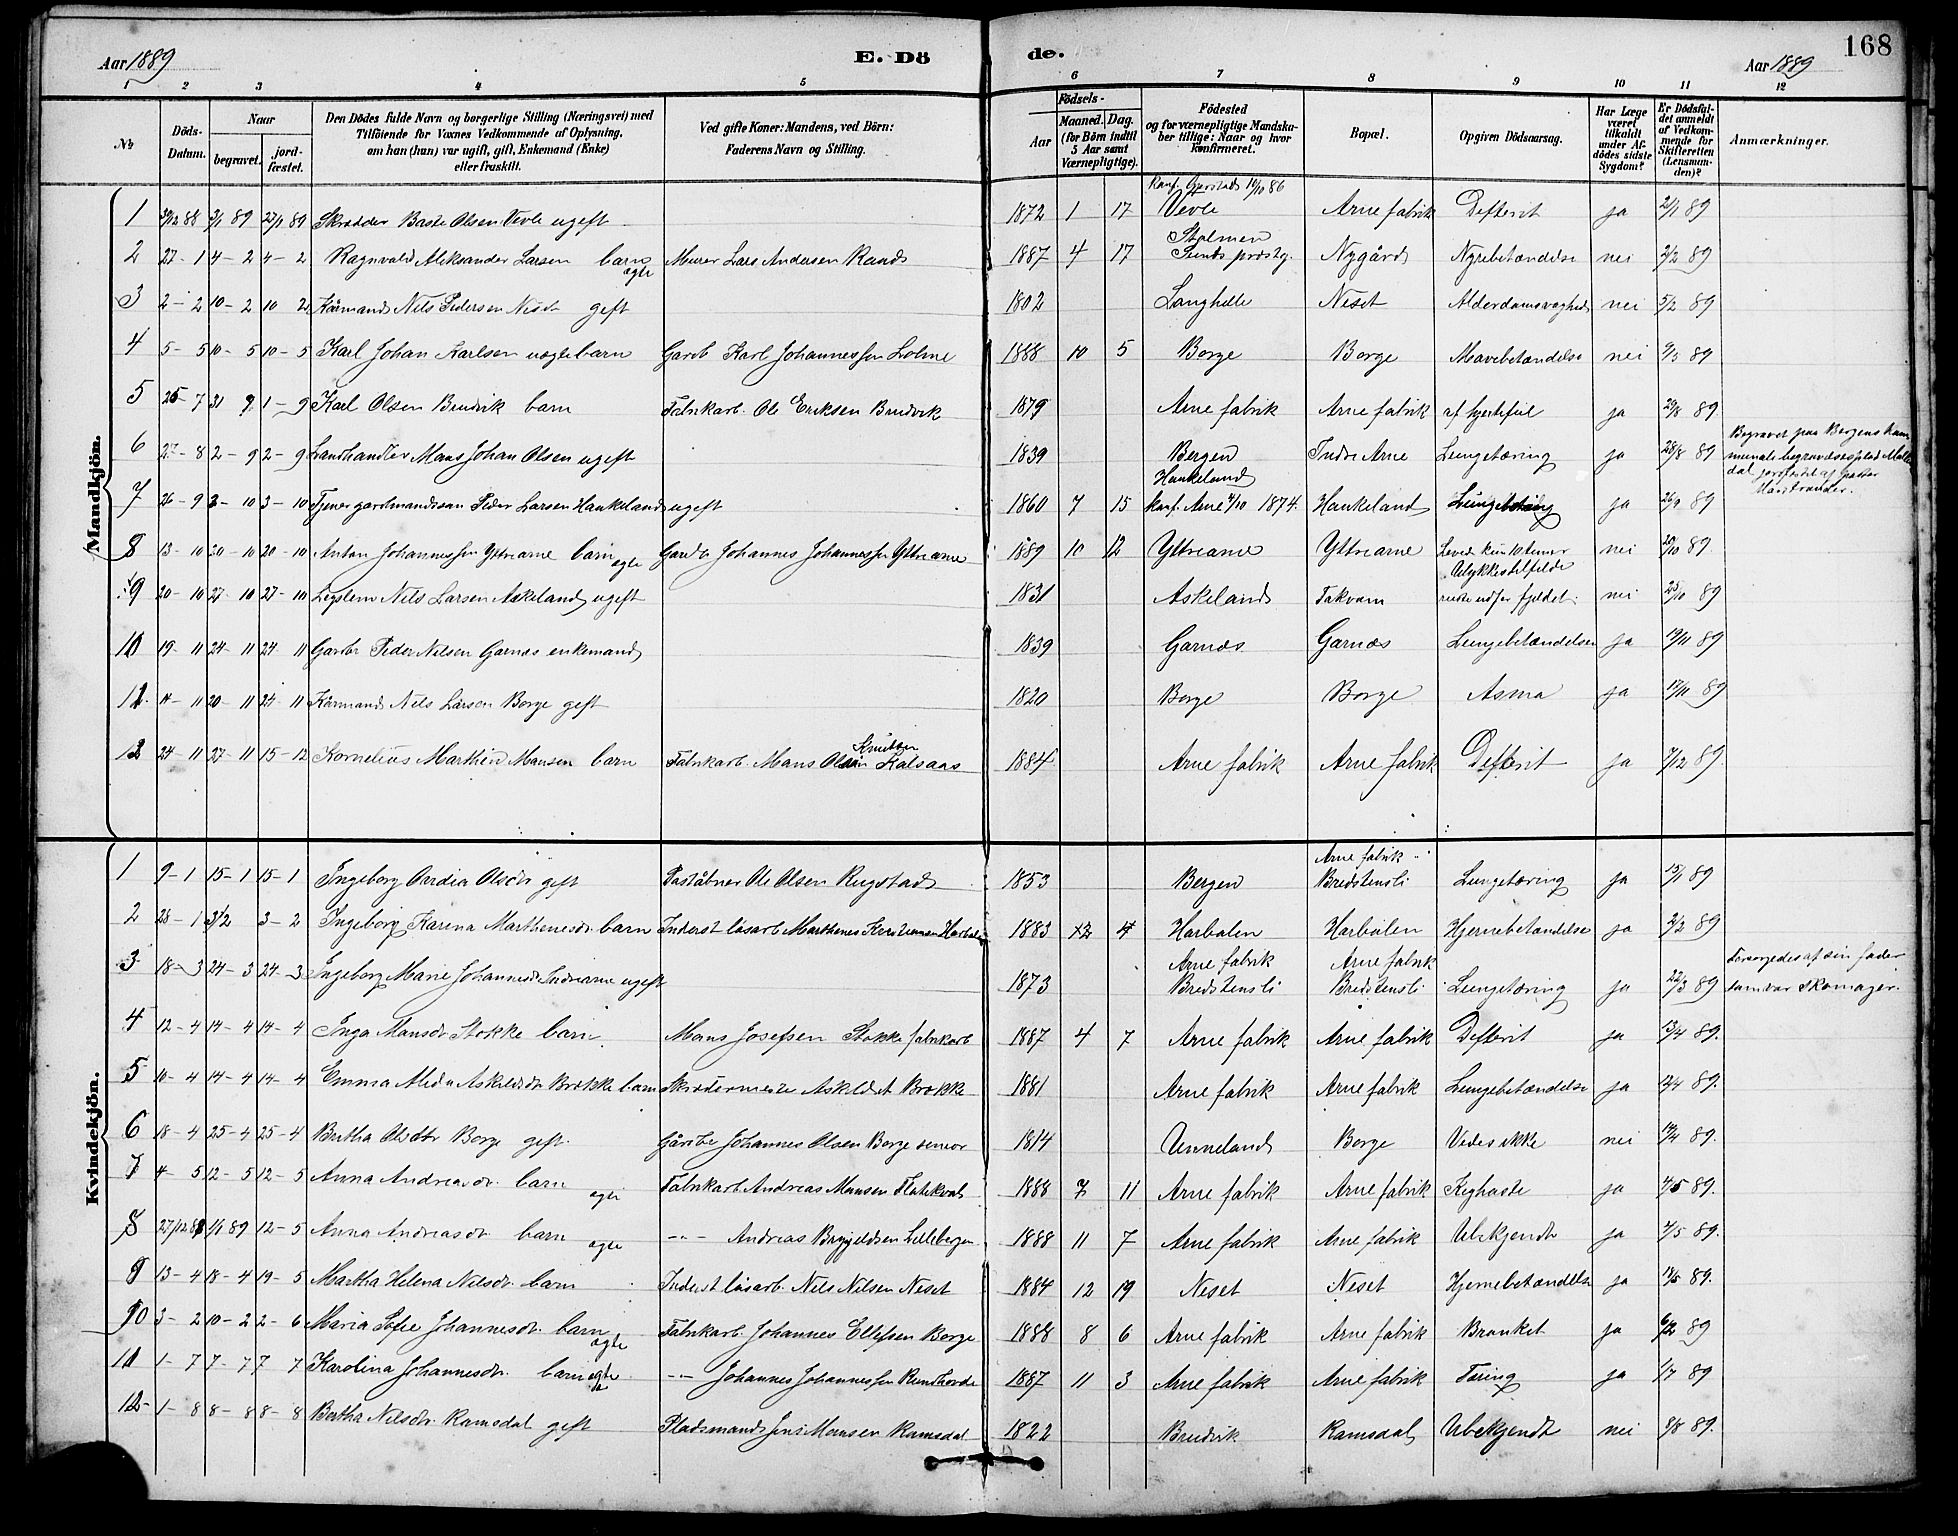 168
Aar 1889 E. Dö de. Aar 1889
1 2 3 4 5 6 7 8 9 10 11 12
№ Döds-Datum. Naar begravet. jord-fæstet. Den Dödes fulde Navn og borgerlige Stilling (Næringsvei) med Tilföiende for Voxnes Vedkommende af Oplysning, om han (hun) var ugift, gift, Enkemand (Enke) eller fraskilt. Ved gifte Koner: Mandens, ved Börn: Faderens Navn og Stilling. Födsels- Aar Maaned. Dag. (for Börn indtil 5 Aar samt Værnepligtige). Födested og for værnepligtige Mandskaber tillige: Naar og hvor Konfirmeret. Bopæl. Opgiven Dödsaarsag. Har Læge været tilkaldt under Afdödes sidste Sygdom? Er Dödsfaldet anmeldt af Vedkommende for Skifteretten (Lensmanden)? Anmærkninger.
Mandkjön.
1 30/12 88 2/1 89 27/1 89 Skrædder Baste Olsen Vevle ugift 1872 1 17 Konf. 10/10 86 Vevle Arne fabrik Defterit ja 2/1 89
2 27-1 4-2 4-2 Ragnvald Aleksander Larsen barn ægte Murer Lars Andersen Rands 1887 4 17 Stolmen Sunds præstg. Nygård Nyrebetændelse nei 2/2 89
3 2-2 10-2 10 2 Kårmand Nils Pedersen Neset gift 1802 Langhelle Neset Alderdomsvaghed nei 5/2 89
4 5-5 10-5 10-5 Karl Johan Karlsen uægte barn Garb Karl Johannessen Lolme 1888 10 5 Borge Borge Mavebetændelse nei 9/5 89
5 25 7 31 9 1-9 Karl Olsen Bredvik barn Fabrikarb. Ole Eriksen Bredvik 1879 Arne fabrik Arne fabrik af hjertefeil ja 29/8 89
6 27-8 2-9 2-9 Landhandler Mans Johan Olsen ugift 1839 Bergen Indre Arne Lungetæring ja 28/8 89 Begravet paa Bergens kommunale begravelsesplads Møllendal jordfæstet af
7 26-9 3-10 3-10 Tjener gardmandssøn Peder Larsen Haukeland ugift 1860 7 15 Haukeland konf. Arne 4/10 1874. Haukeland ja 26/9 89
8 13-10 20-10 20-10 Anton Johannessen Yttrearne barn ægte Gardb Johannes Johannessen Yttrearne 1889 10 12 Yttrearne Yttrearne Leved kun 10 timer nei 20/10 89.
9 20-10 27-10 27-10 Legslem Nils Larsen Askeland ugift 1831 Askeland Takvam Ulykkestilfælde udfor fjeldet. nei 25/10 89
10 19-11 24-11 24 11 Gardbr Peder Nilsen Garnæs enkemand 1839 Garnæs Garnæs Lungebetændelse ja 19/11 89
11. 11-11 20-11 24 11 Kårmand Nils Larsen Borge gift 1820 Borge Borge Asma ja 17/11 89
12 24-11 27-11 15-12 Kornelius Marthin Mansen barn Fabrikarb. Mans Knutsen Kalsaas 1884 Arne fabrik Arne fabrik Defterit ja 7/12 89.
Kvindekjön.
1 9-1 15-1 15-1 Ingeborg Ovidia Olsdtr gift Poståbner Ole Olsen Rugstad 1853 Bergen Arne fabrik Bredstensli Lungetæring ja 15/1 89
2 28-1 3/2 3-2 Ingeborg Karina Marthinesdr. barn Inderst løsarb Marthines Kristensen Harbalen 1883 12 4 Harbalen Harbalen Hjernebetændelse ja 2/2 89
3 18-3 24-3 24-3 Ingeborg Marie Johannesdr. Indrearne ugift 1873 Arne fabrik Bredstensli Arne fabrik Bredstensli Lungetæring ja 22/3 89 Forsørgedes af sin fader som var skomager.
4 12-4 14-4 14-4 Inga Mansdr Stokke barn. Mans Josefsen Stokke fabrikarb 1887 4 7 Arne fabrik Arne fabrik Defterit ja 13/4 89.
5 10-4 14-4 14-4 Emma Alida Askildsdr Brokke barn Skrædermester Askild Brokke 1881 Arne fabrik Arne fabrik Lungebetændelse ja 12/4 89.
6 18-4 25-4 25-4 Bertha Olsdtr Borge gift. Gårdbr Johannes Olsen Borge senior 1814 Unneland Borge Vedes ikke nei 19/4 89.
7 4-5 12-5 12-5 Anna Andreasdr. barn ægte Fabrikarb Andreas Mansen Flatekval 1888 7 11 Arne fabrik Arne fabrik Kighoste ja 4/5 89.
8 27/12 88 1/1 89 12-5 Anna Andreasdr. barn ægte -"- Andreas Brynjeldsen Lillebergen 1888 11 7 Arne fabrik Arne fabrik Ubekjendt ja 4/5 89.
9 13-4 18-4 19-5 Martha Helena Nilsdr. barn Inderst løsarb. Nils Nilsen Neset 1884 12 19 Neset Neset Hjernebetændelse ja 18/5 89.
10 3-2 10-2 2-6 Maria Sofie Johannesdr. barn ægte Fabrikarb Johannes Ellefsen Borge 1888 8 6 Arne fabrik Arne fabrik Bronket ja 6/2 89
11 1-7 7-7 7 7 Karolina Johannesdr. barn ægte -"- Johannes Johannessen Rundhovde 1887 11 3 Arne fabrik Arne fabrik Tæring ja 1/7 89
12- 1-8 8-8 8-8 Bertha Nilsdr. Ramsdal gift Pladsmand Jens Monsen Ramsdal 1822 Bredvik Ramsdal Ubekjendt nei 8/8 89.